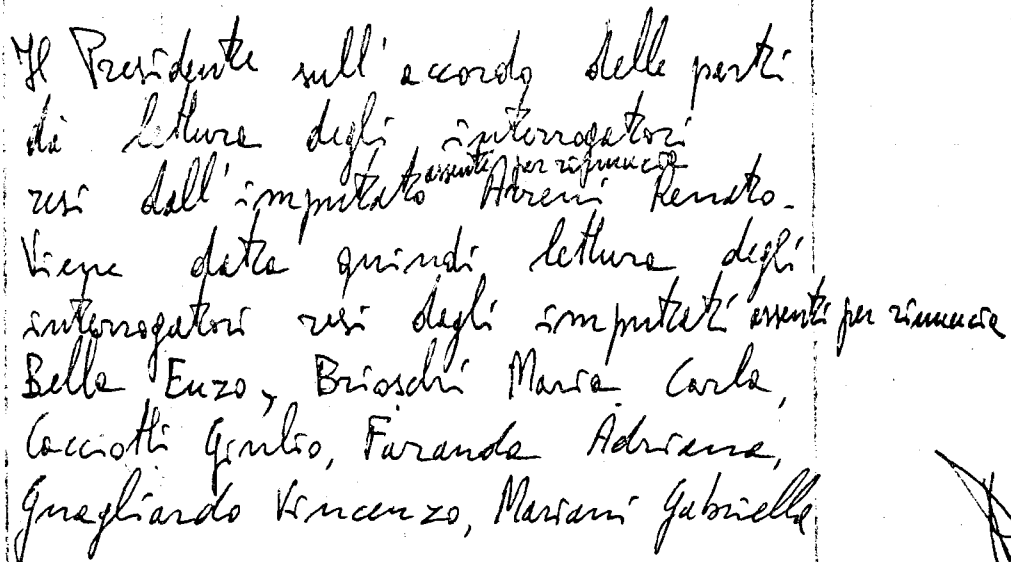 Il Presidente sull'accordo delle parti
dà lettura degli interrogatori
resi dall'imputato assente per rinuncia Arreni Renato.
Viene data quindi lettura degli
interrogatori resi dagli imputati assenti per rinuncia
Bella Enzo, Brioschi Maria Carla,
Cacciotti Giulio, Faranda Adriana,
Guagliardo Vincenzo, Mariani Gabriella